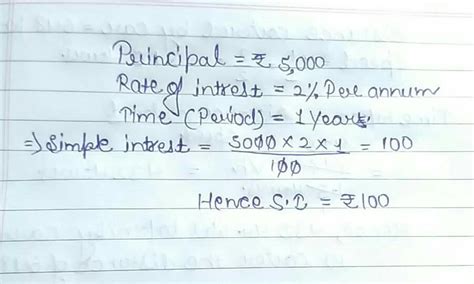 Principal = ₹ 5,000
Rate of intrest = 2% Per annum
Time (Period) = 1 Years.
⇒ Simple intrest = 5000 × 2 × 1 = 100
100
Hence S.I = ₹100